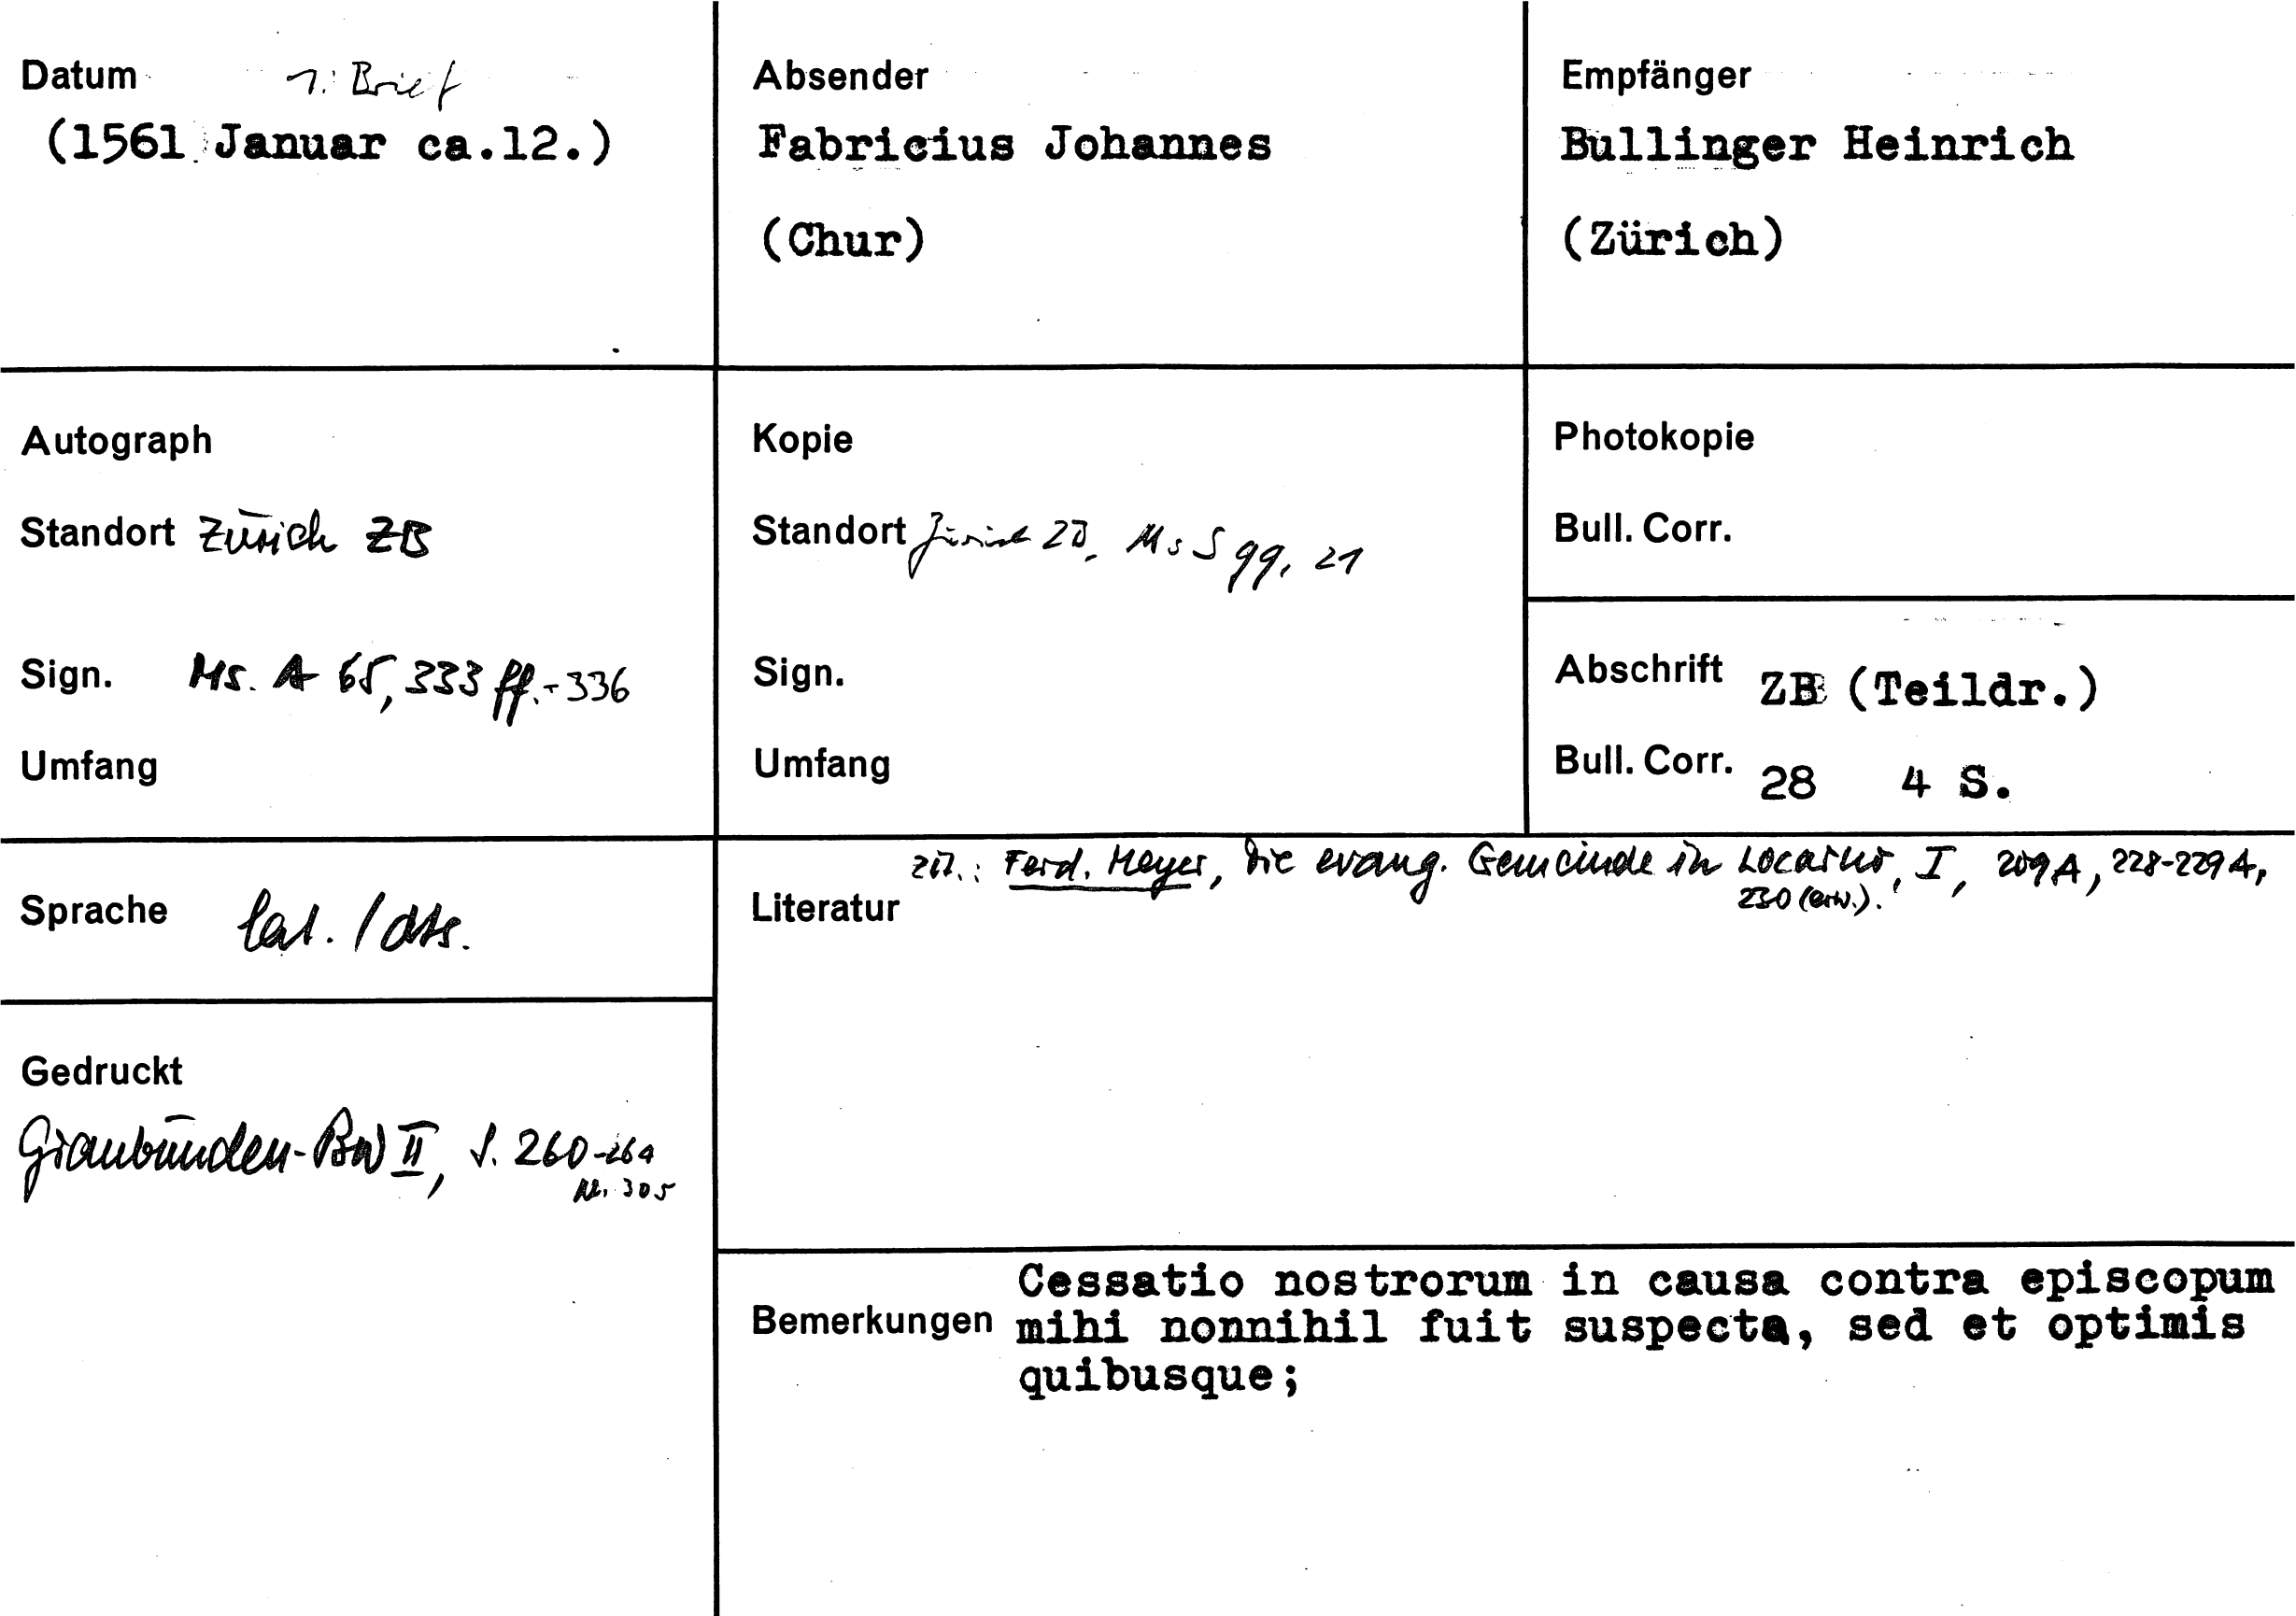 Datum 1. Brief
(1561 Januar ca.12.)
Absender
Fabricius Johannes
(Chur)
Empfänger
Bullinger Heinrich
(Zürich)
Autograph
Standort Zürich ZB
Sign. Ms. A 65, 333 ff.-336
Umfang
Kopie
Standort Zürich ZB, Ms S 99, 21
Sign.
Umfang
Photokopie
Bull. Corr.
Abschrift ZB (Teildr.)
Bull. Corr. 28 4 S.
Sprache lat. / dts.
Literatur zit.: Ferd. Meyer, Die evang. Gemeinde in Locarno, I, 209 A, 228-229 A,
230 (erw.).
Gedruckt
Graubünden-BW II, S. 260-264
Nr. 305
Bemerkungen
Cessatio nostrorum in causa contra episcopum
mihi nonnihil fuit suspecta, sed et optimis
quibusque;